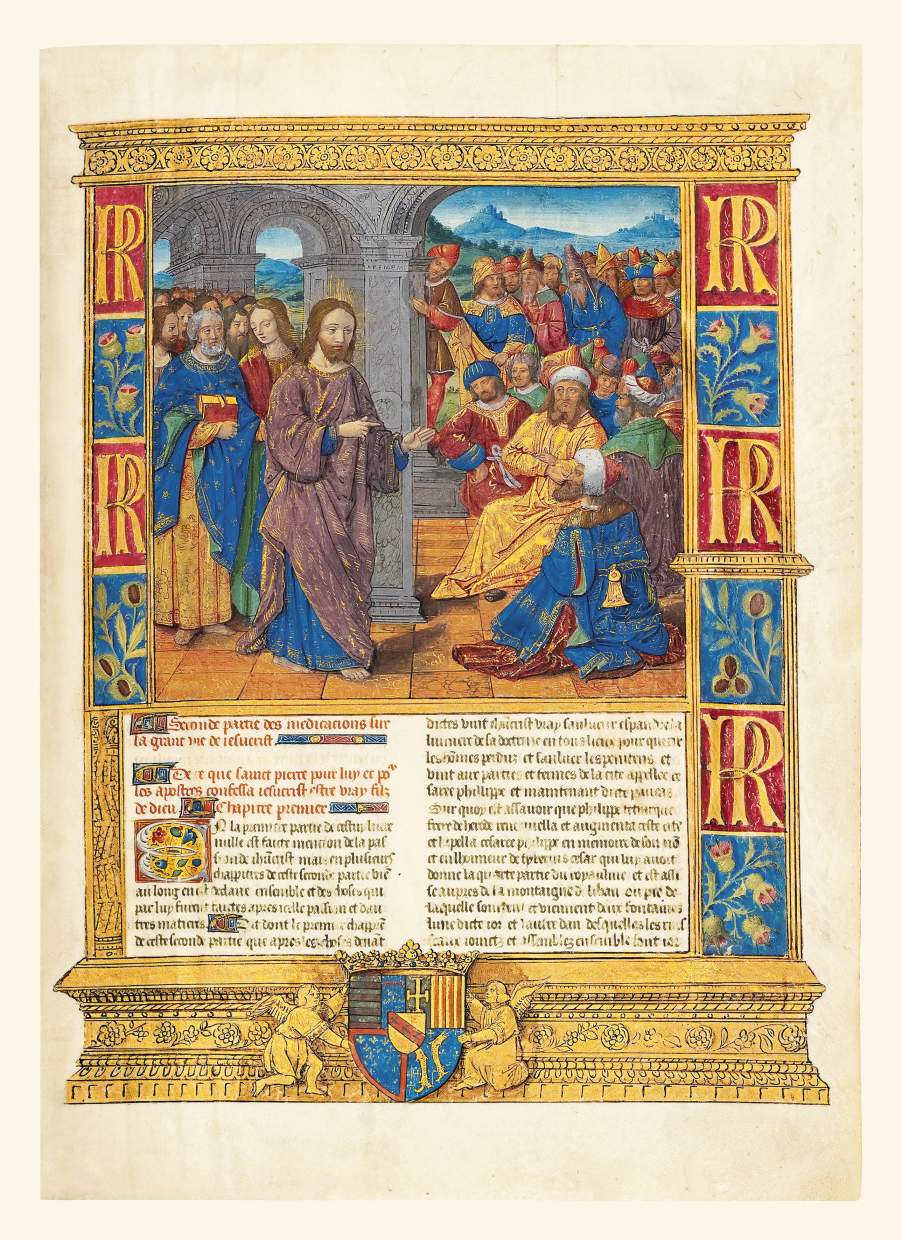 R
R
R
R
R
Seconde partie des meditacions sur
la grant vie de iesucrist
De ce que sainct pierre pour luy et po᷒
les apostres confessa iesucrist estre vray filz
de dieu Chapitre premier
En la premiere partie de cestui livre
nulle est faicte mencion de la pas
sion de christ mais en plusieurs
chappitres de ceste seconde partie bien
au long en est declaire ensemble et des choses qui
par luy furent faictes apres icelle passion et dau
tres matieres Et dont le premier chappitre
de ceste seconde partie que apres les choses devat
dictes vint christ vray sauluer espandre la
lumiere de sa doctrine en tous lieux pour querir
les hommes perduz et sauluer les penitens et
vint aux parties et termes de la cite appellee ce
saree philippe et maintenant dicte
Sur quoy est assauoir que philippe tetrarque
frere de herode renouuella et augmenta ceste cite
et lapella cesaree philippe en memoire de son nom
et en lhonneur de cesar qui luy auoit
donne la quarte partie du royaulme et est assi
se aupres de la montaigne du liban ou pie de
laquelle sourdent et viennent deux fontaines
lune dicte ior et lautre dan desquelles les ruis
seaux ioinctz et assamblez ensemble sont ior